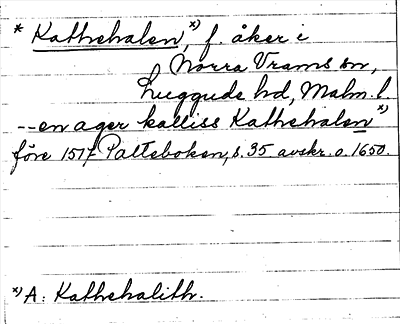 * Kathehalen,*) f. åker i
Norra Vrams sn,
Luggude hd, Malm. l.
-- en ager kalliss Kathehalen*)
före 1517 Palteboken, s. 35 avskr. o. 1650.
*) A: Kathehalith.